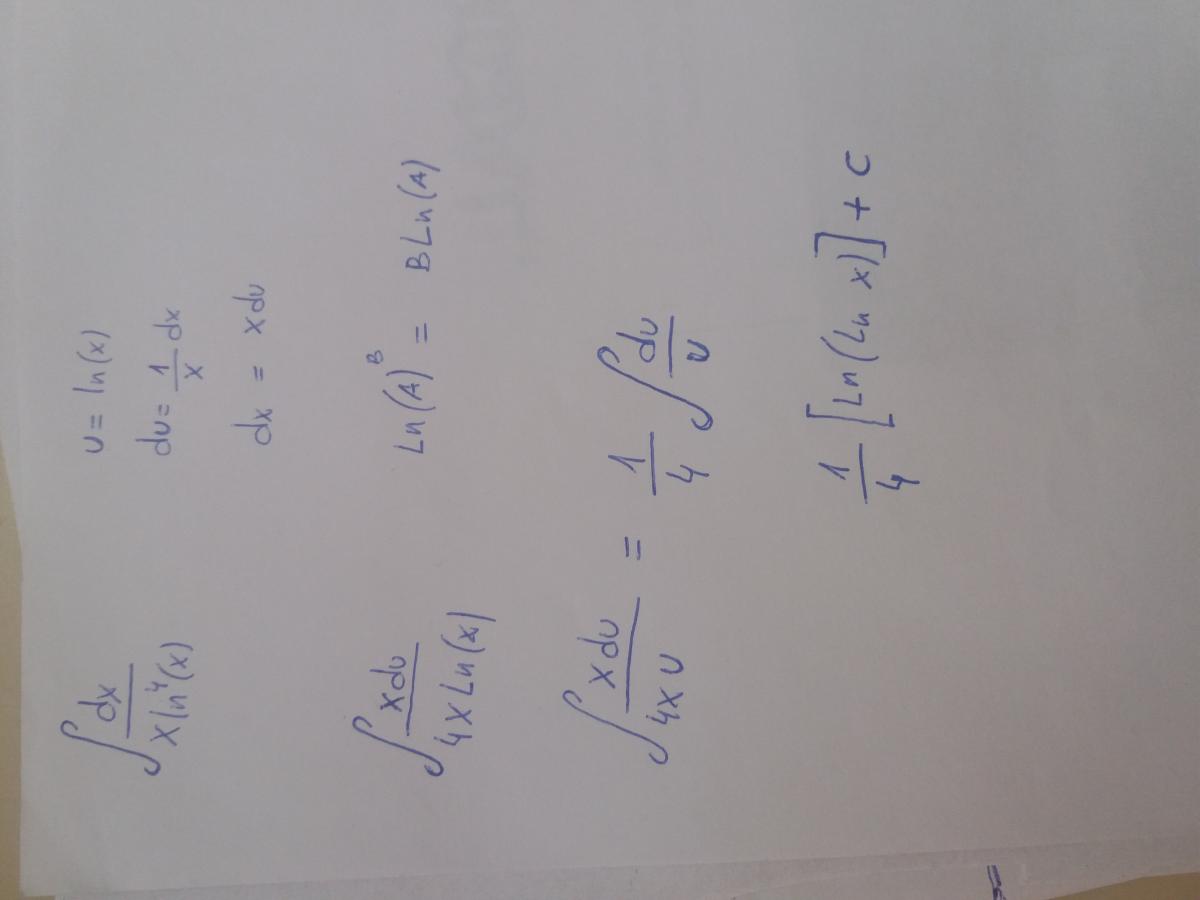 ∫ dx / (x ln⁴(x))    u = ln(x)
du = 1/x dx
dx = x du
∫ x du / (4x Ln(x))    Ln(A)^B = B Ln(A)
∫ x du / (4x u) = 1/4 ∫ du/u
1/4 [Ln(Ln x)] + C